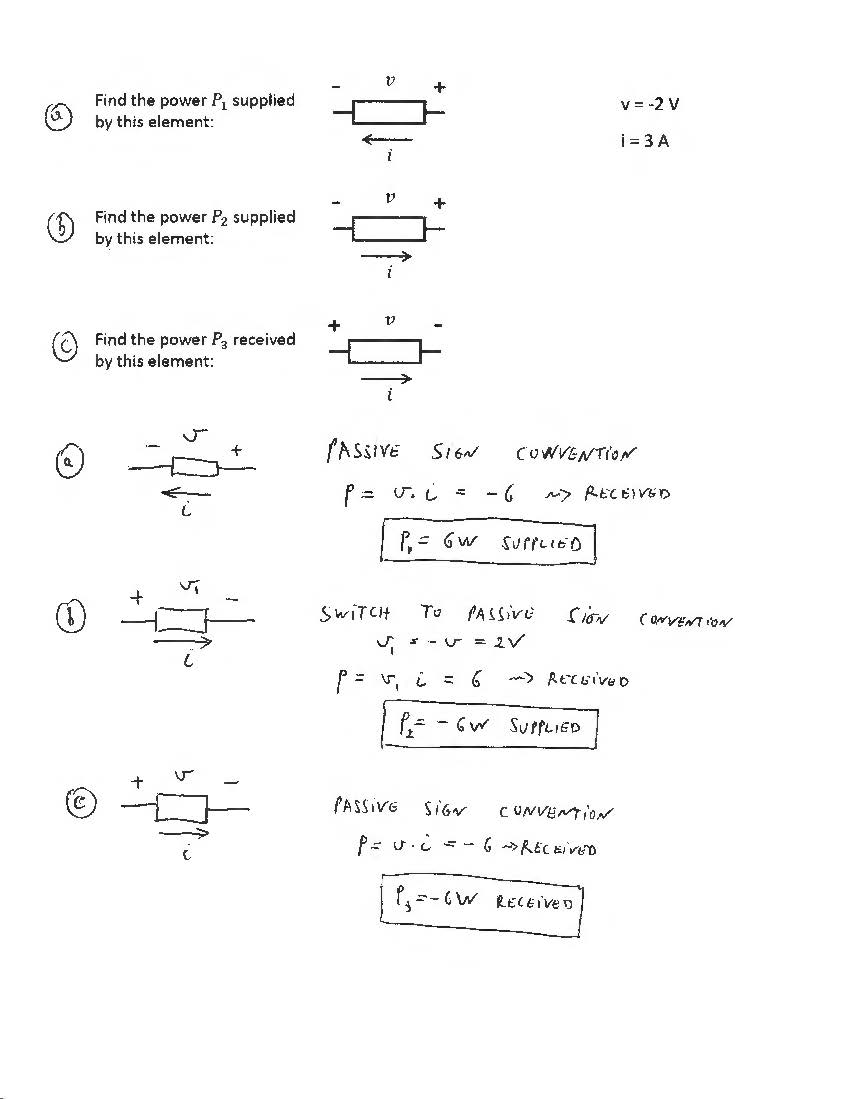 (a) Find the power P₁ supplied
by this element:
- v +
i
v = -2 V
i = 3 A
(b) Find the power P₂ supplied
by this element:
- v +
i
(c) Find the power P₃ received
by this element:
+ v -
i
(a) - v +
i
PASSIVE SIGN CONVENTION
P = v . i = -6 ~> RECEIVED
P₁ = 6W SUPPLIED
(b) + v₁ -
i
SWITCH TO PASSIVE SIGN CONVENTION
v₁ = -v = 2V
P = v₁ i = 6 ~> RECEIVED
P₂ = -6W SUPPLIED
(c) + v -
i
PASSIVE SIGN CONVENTION
P = v . i = -6 ~> RECEIVED
P₃ = -6W RECEIVED